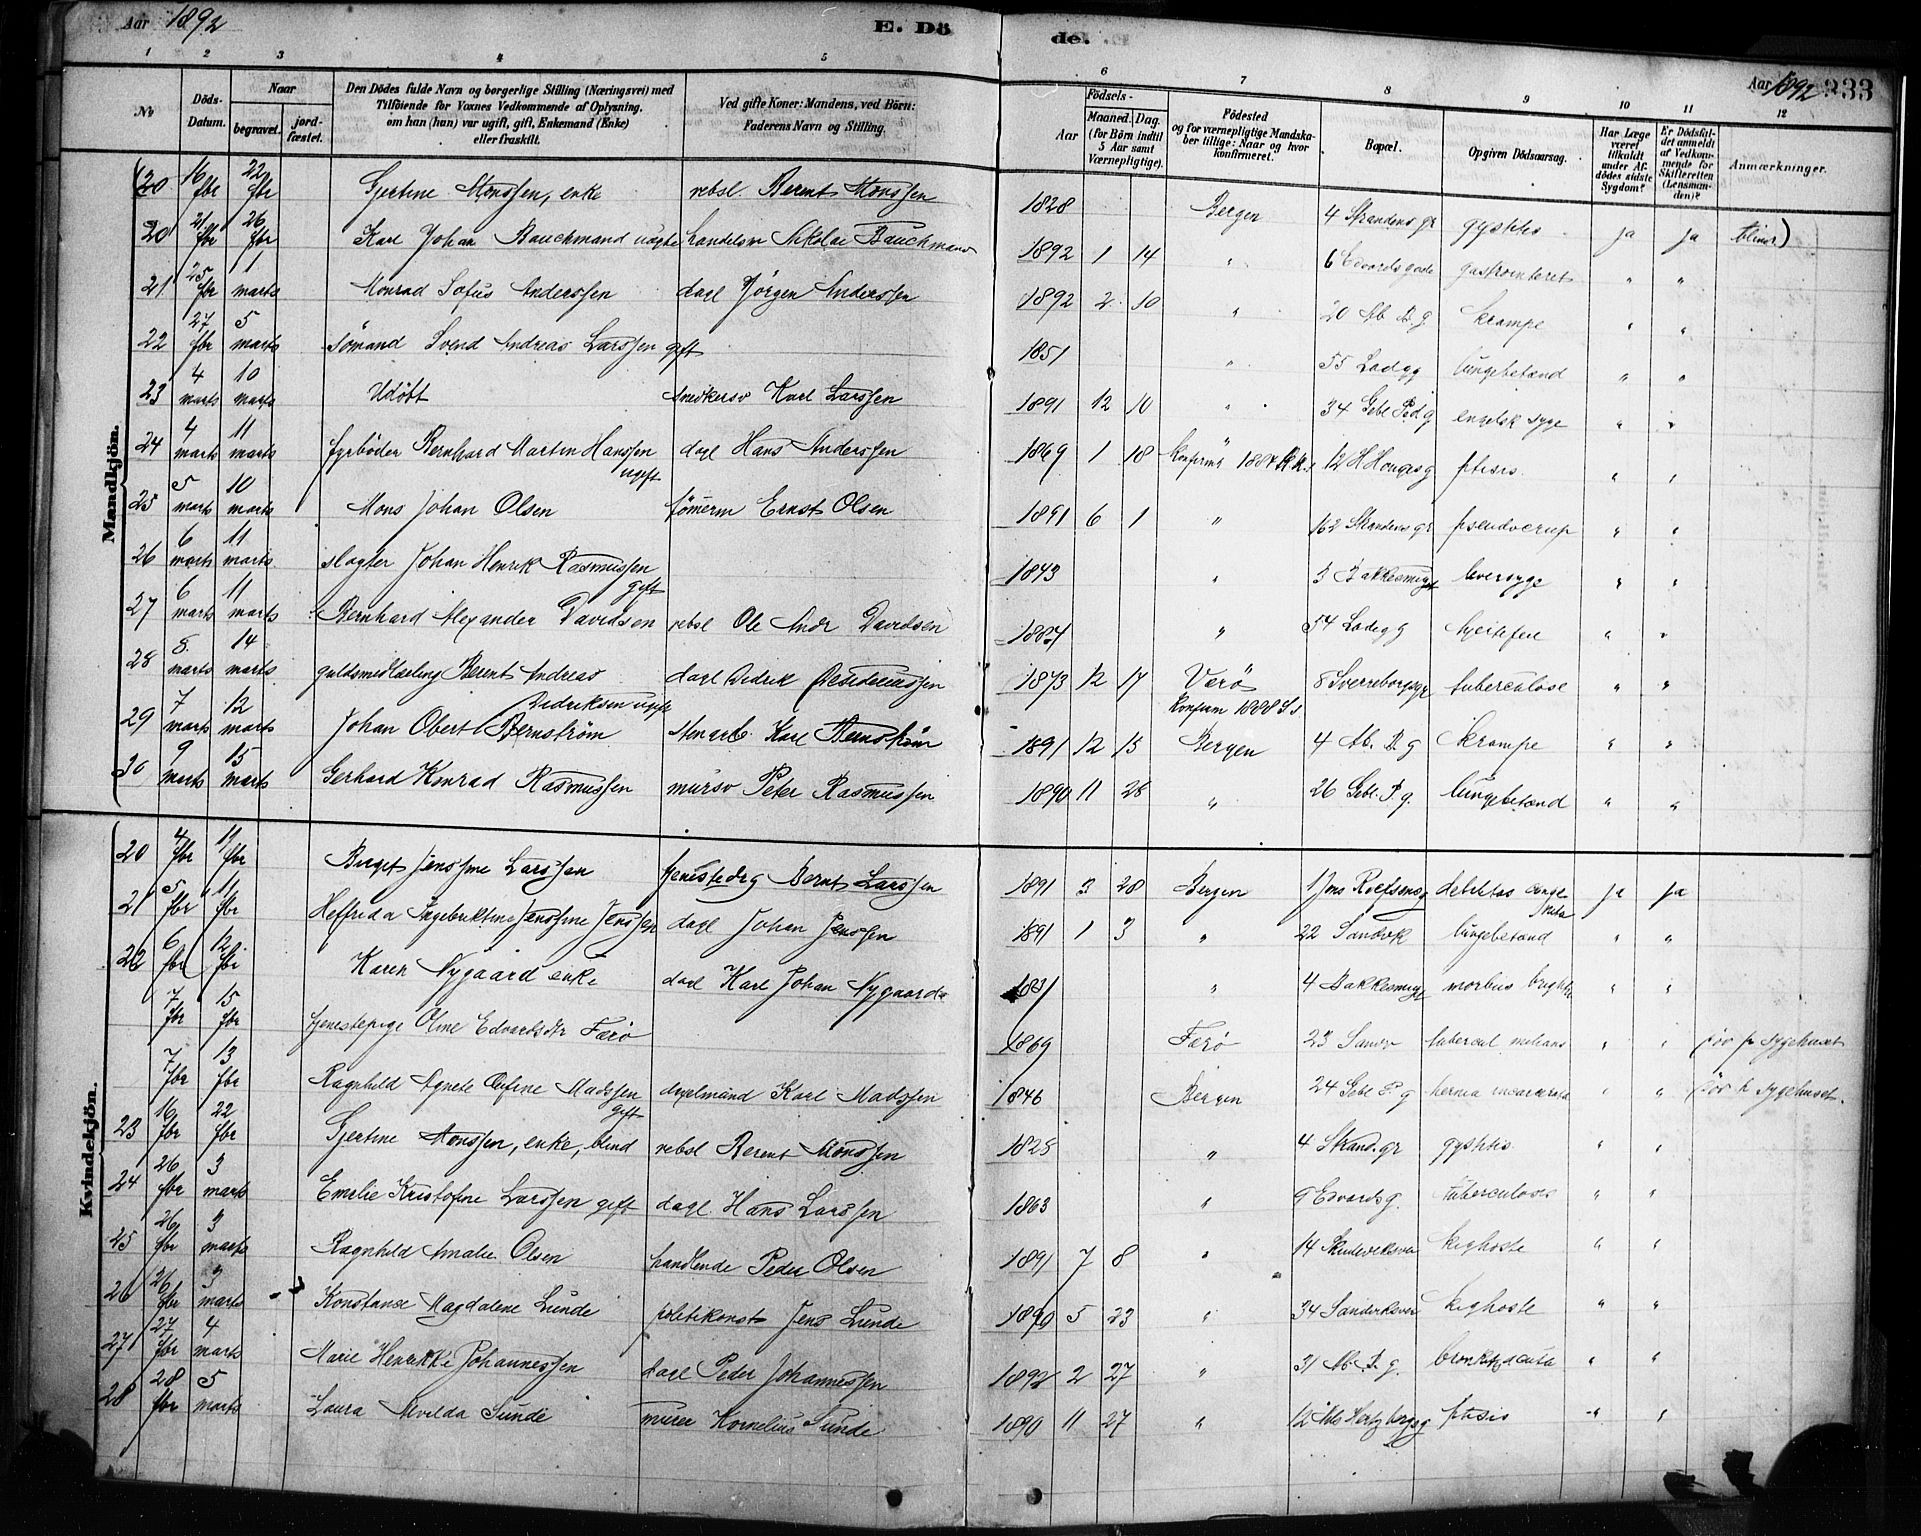 Aar 1892
E. Dö
de.
Aar 1892 233
1 2 3 4 5 6 7 8 9 10 11 12
No
Döds-Datum.
Naar
begravet.
jord-fæstet.
Den Dödes fulde Navn og borgerlige Stilling (Næringsvei) med
Tilföiende for Voxnes Vedkommende af Oplysning.
om han (hun) var ugift, gift, Enkemand (Enke)
eller fraskilt.
Ved gifte Koner: Mandens, ved Börn:
Faderens Navn og Stilling.
Födsels-
Aar
Maaned. Dag.
(for Börn indtil
5 Aar samt
Værnepligtige).
Födested
og for værnepligtige Mandska-
ber tillige: Naar og hvor
konfirmeret.
Bopæl.
Opgiven Dödsaarsag.
Har Læge
været
tilkaldt
under Af-
dödes sidste
Sygdom?
Er Dödsfal-
det anmeldt
af Vedkom-
mende for
Skifteretten
(Lensman-
den)?
Anmærkninger.
Mandkjön.
(20 16 fbr 22 fbr Gjertine Monssen, enke rebsl Berent Monssen 1828 Bergen 4 Strandens gr ja ja blind)
20 21 fbr 26 fbr Karl Johan Bauchmand ugte handelsm Nikolai Bauchmand 1892 1 14 " 6 Edvards gade " "
21 25 fbr 1 marts Monrad Sofus Anderssen dagl Jørgen Anderssen 1892 2 10 " 20 Ab. B. g krampe " "
22 27 fbr 5 marts Sömand Svend Andreas Larssen gift 1851 " 55 Lodeg lungebetænd " "
23 4 marts 10 marts Udöbt snedkersv Karl Larssen 1891 12 10 " 34 Gebl Ped g engelsk syge " "
24 4 marts 11 marts fyrböder Bernhard Martin Hanssen ugift dagl Hans Anderssen 1869 1 18 12 H Hougesg ptisis " "
25 5 marts 10 marts Mons Johan Olsen tömerm Ernst Olsen 1891 6 1 " 162 Strandens gr pseudocrup " "
26 6 marts 11 marts slagter Johan Henrik Rasmussen gift 1843 " 3 Bakkesmuget leversyge " "
27 6 marts 11 marts Bernhard Alexander Davidsen rebsl Ole Andr Davidsen 1884 " 54 Lodeg " "
28 8 marts 14 marts guldsmedlærling Berent Andreas Didriksen ugift dagl Didrik 1873 12 17 Værö Konfirm 1888 8 Sverreborgsgt tuberculose " "
29 7 marts 12 marts Johan Obert Bernström Stenarb. Karl Bernström 1891 12 13 Bergen 4 Ab. B. g krampe " "
30 9 marts 15 marts Gerhard Konrad Rasmussen mursv Peter Rasmussen 1890 11 28 " 26 Gebl. P. g. lungebetænd " "
Kvindekjön.
20 4 fbr 11 fbr Birget Jenssine Larssen tjenestedrg Bernt Larssen 1891 3 28 Bergen debilitas ja ja
21 5 fbr 11 fbr Helfrida Ingebriktine Jenssine Jenssen dagl Johan Jenssen 1891 1 3 " 22 Sandvk lungebetænd " "
22 6 fbr 12 fbr Karen Nygaard enke dagl Karl Johan Nygaard 1831 " 4 Bakkesmuget morbus brightii " "
7 fbr 15 fbr tjenestepige Oline Edvartsdtr Færö 1869 Færö 23 Sandv tubercul miliaris " " pr sygehuset
7 fbr 13 fbr Ragnhild Agnete Oline Madssen gift Karl Madssen 1846 Bergen 24 Gebl P. g hernia incarcerata " " sygehuset.
23 16 fbr 22 fbr Gjertine Monssen, enke, blind rebsl Berent Monssen 1828 " 4 Strand. gr " "
24 26 fbr 3 marts Emelie Kristofine Larssen gift dagl Hans Larssen 1863 " 9 Edvards g. tuberculosis " "
25 26 fbr 3 marts Ragnhild Amalie Olsen handlende Peder Olsen 1891 7 8 " 14 Skuteviksvei kighoste " "
26 26 fbr 3 marts Konstance Magdalene Lunde politikonst Jens Lunde 1890 5 23 " 34 Sandviksvei kighoste " "
27 27 fbr 4 marts Marie Henrikke Johannessen dagl Peder Johannessen 1892 2 27 " 31 Ab. B. g. bronkit acuta " "
28 28 fbr 5 marts Laura Alvilda Sunde murer Kornelius Sunde 1890 11 27 " 12 Nils Hertzbergsg ptisis " "